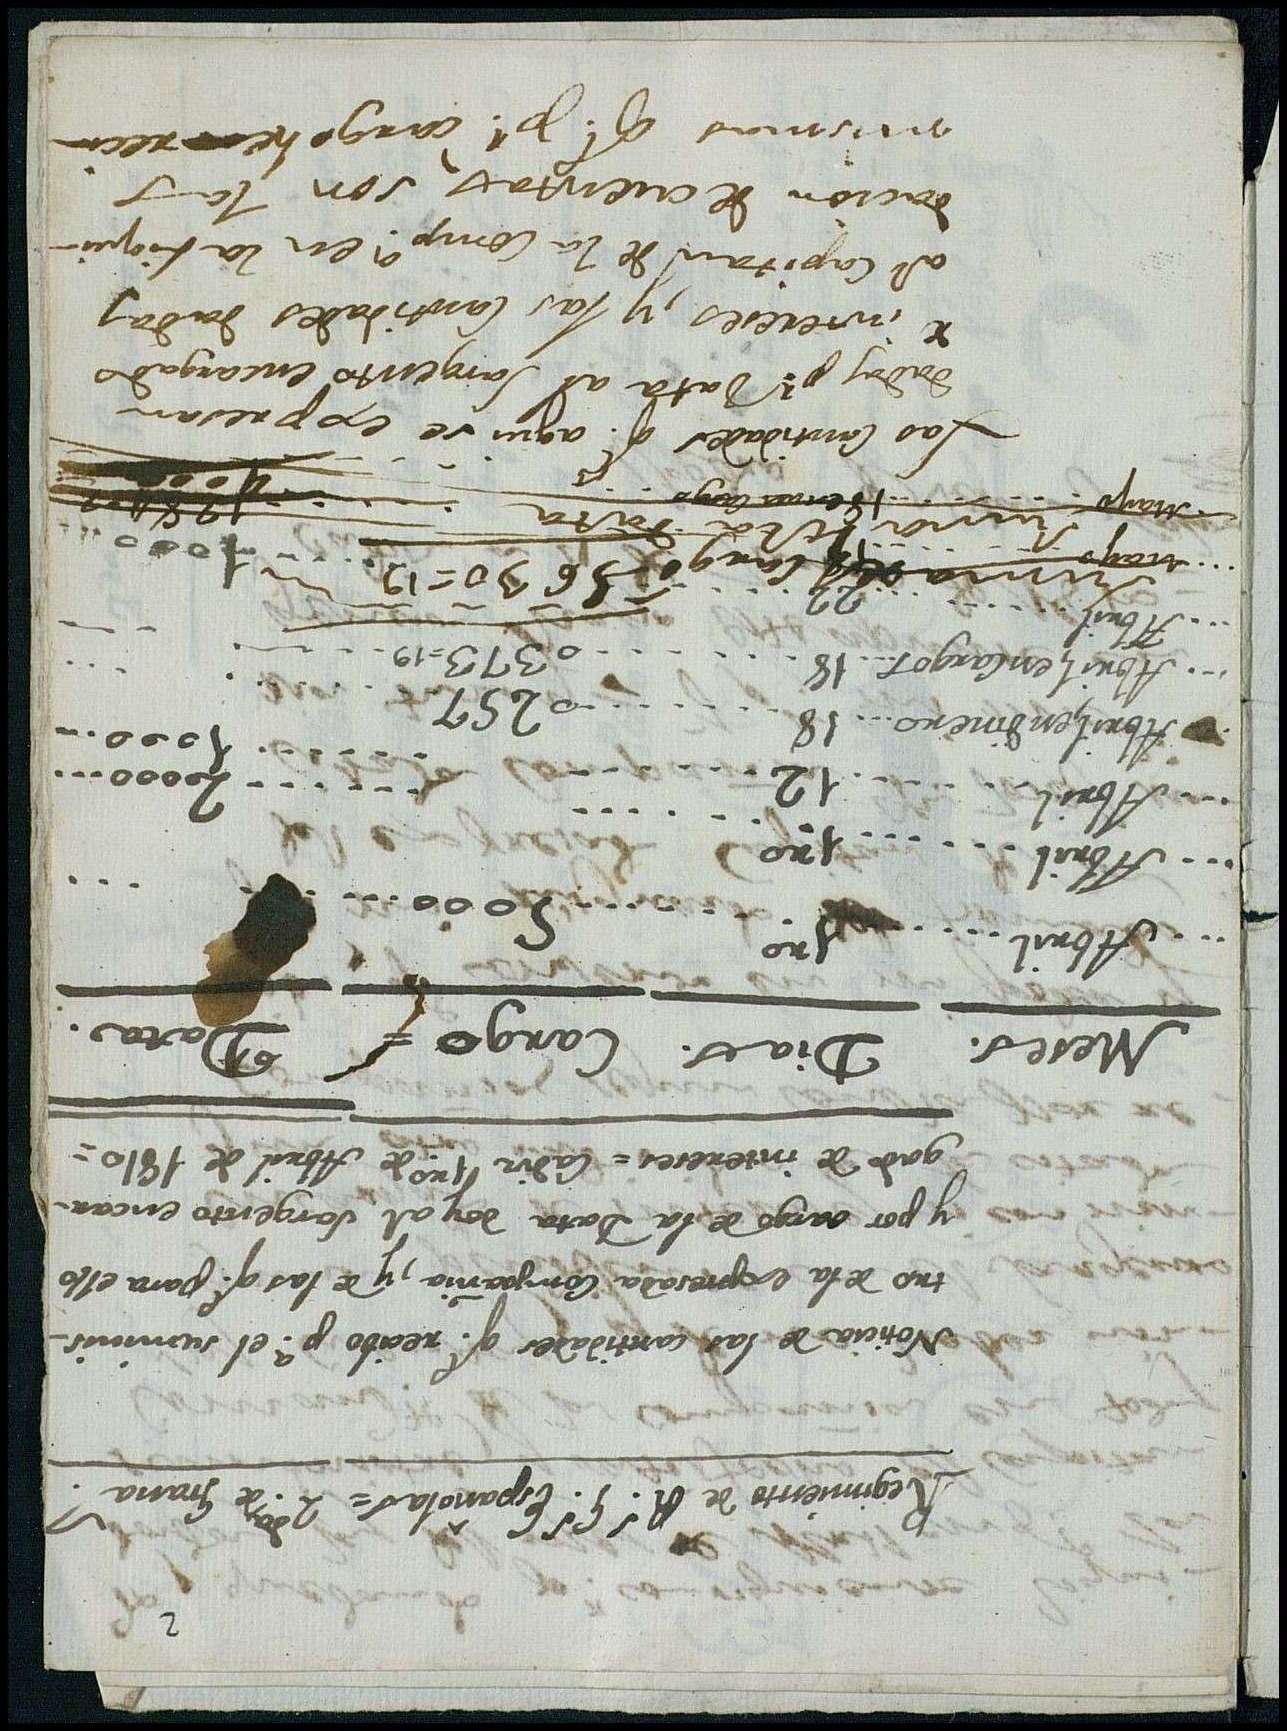 2
Regimiento de Rs. Gs. Españolas = 2. de Grana.s
Noticia de las cantidades q.e recibo p.a el suminis-
tro de la expresada Compañia, y de las q.e para ello
y por cargo de la Data doy al Sargento encar-
gado de intereses = Cadiz 1ro. de Abril de 1810 =
Meses. Dias. Cargo = Data.
Abril 1ro 5000
Abril 1ro 2000
Abril 12 1000
Abril, en dinero 18 0257
Abril, en cargos 18 0373=19
Abril 22 1000
Mayo
Suma del Cargo 5630=19
Mayo
Suma de la Data 4000
Las Cantidades q.e aqui se expresan
dadas p.r Data al Sargento encargado
de intereses, y las Cantidades dadas
al Capitan de la Comp.a en la liqui-
dacion de cuentas, son las
mismas q.e p.r cargo he reci-